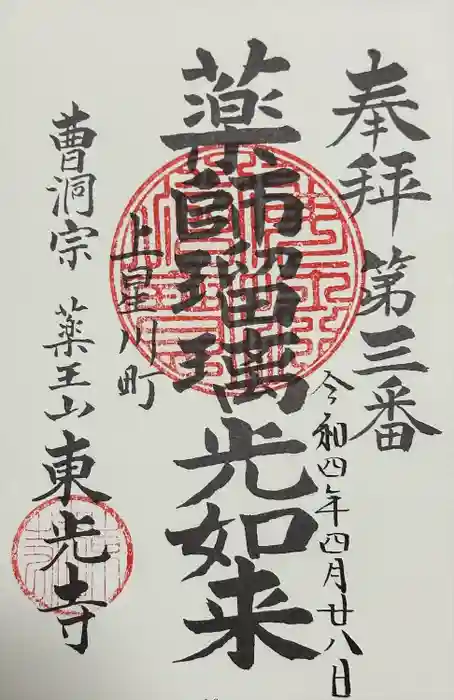 奉拝 第三番
令和四年四月廿八日
薬師瑠璃光如来
上星川町
曹洞宗 薬王山 東光寺